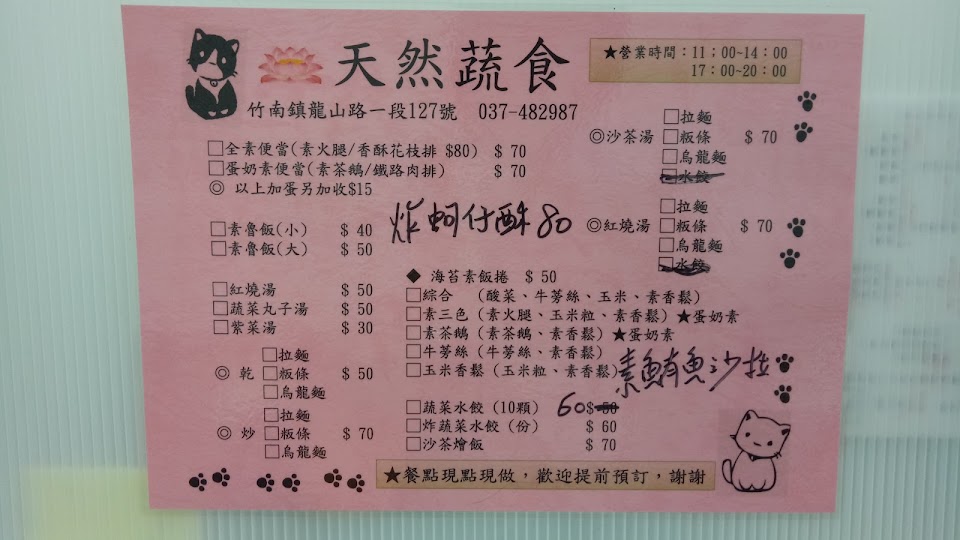 天然蔬食
★營業時間：11：00~14：00
17：00~20：00
竹南鎮龍山路一段127號 037-482987
□全素便當(素火腿/香酥花枝排 $80) $ 70
□蛋奶素便當(素茶鵝/鐵路肉排) $ 70
◎ 以上加蛋另加收$15
□素魯飯(小) $ 40
□素魯飯(大) $ 50
□紅燒湯 $ 50
□蔬菜丸子湯 $ 50
□紫菜湯 $ 30
□拉麵
◎ 乾 □粄條 $ 50
□烏龍麵
□拉麵
◎ 炒 □粄條 $ 70
□烏龍麵
□拉麵
◎沙茶湯 □粄條 $ 70
□烏龍麵
□水餃
炸蚵仔酥80
□拉麵
◎紅燒湯 □粄條 $ 70
□烏龍麵
□水餃
◆ 海苔素飯捲 $ 50
□綜合 (酸菜、牛蒡絲、玉米、素香鬆)
□素三色 (素火腿、玉米粒、素香鬆) ★蛋奶素
□素茶鵝 (素茶鵝、素香鬆) ★蛋奶素
□牛蒡絲 (牛蒡絲、素香鬆)
□玉米香鬆 (玉米粒、素香鬆)
素鮪魚沙拉
□蔬菜水餃 (10顆) 60 $ 50
□炸蔬菜水餃 (份) $ 60
□沙茶燴飯 $ 70
★餐點現點現做，歡迎提前預訂，謝謝